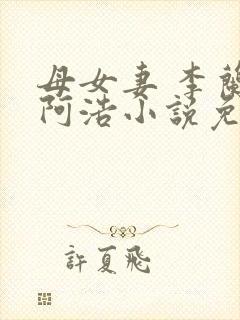 母女妻 李
阿浩小說免
許夏飛